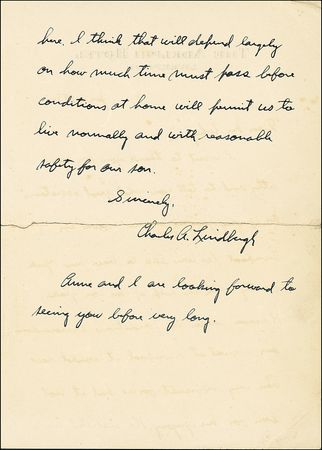 here. I think that will depend largely
on how much time must pass before
conditions at home will permit us to
live normally and with reasonable
safety for our son.
Sincerely,
Charles A. Lindbergh
Anne and I are looking forward to
seeing you before very long.